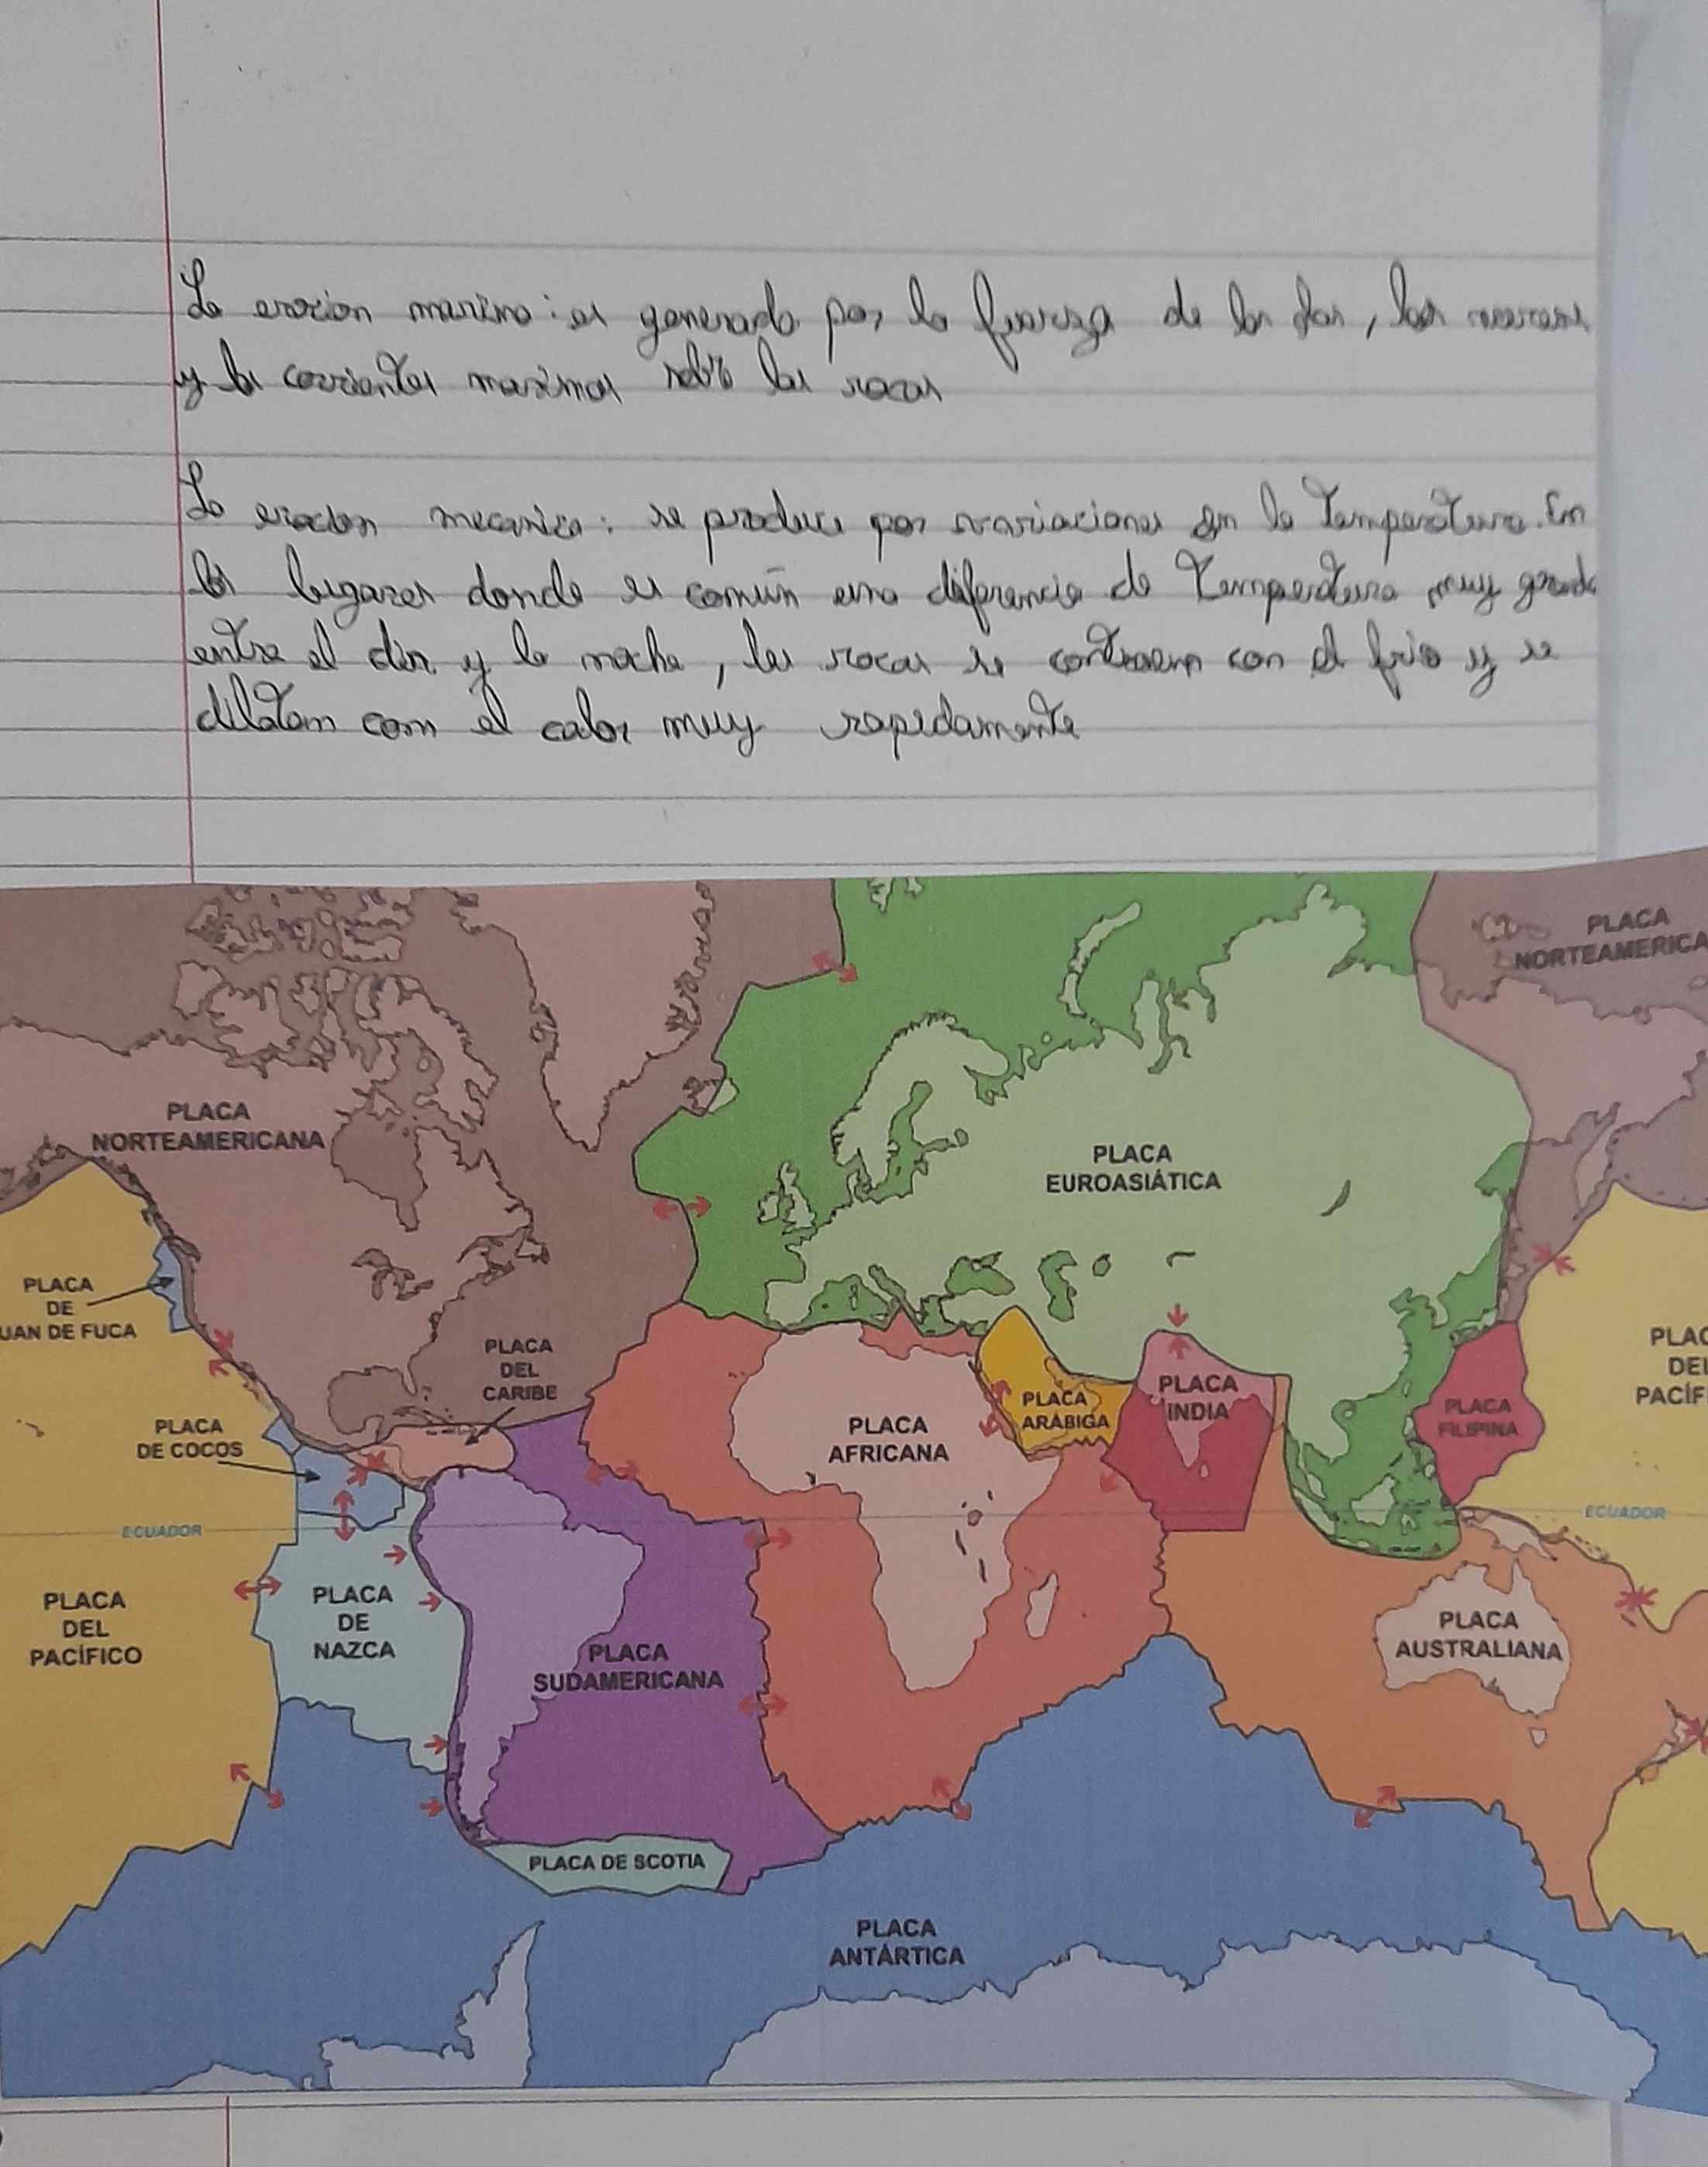 La erocion marina: es generada por la fuerza de las olas, las mareas
y las corrientes marinas sobre las rocas
La erocion mecanica: se produce por variaciones en la temperatura. En
los lugares donde es común una diferencia de temperatura muy grande
entre el dia y la noche, las rocas se contraen con el frio y se
dilatan con el calor muy rapidamente
PLACA
NORTEAMERICA
PLACA
NORTEAMERICANA
PLACA
EUROASIÁTICA
PLACA
DE
UAN DE FUCA
PLACA
DEL
CARIBE
PLACA
DE COCOS
PLACA
AFRICANA
PLACA
ARÁBIGA
PLACA
INDIA
PLACA
FILIPINA
PLAC
DEL
PACÍF
ECUADOR
ECUADOR
PLACA
DEL
PACÍFICO
PLACA
DE
NAZCA
PLACA
SUDAMERICANA
PLACA
AUSTRALIANA
PLACA DE SCOTIA
PLACA
ANTÁRTICA